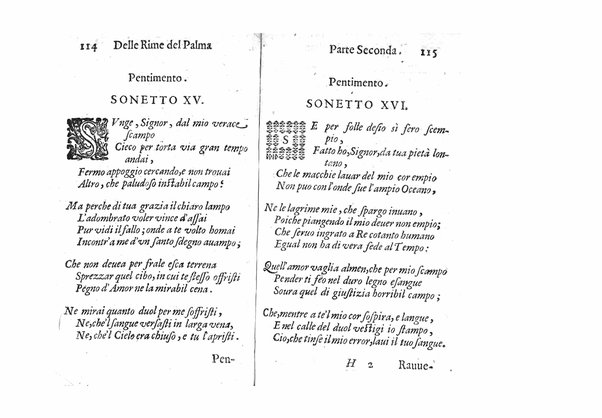 114 Delle Rime del Palma
Pentimento.
SONETTO XV.
SVnge, Signor, dal mio verace
scampo
Cieco per torta via gran tempo
andai,
Fermo appoggio cercando, e non trouai
Altro, che paludoso instabil campo:
Ma perche di tua grazia il chiaro lampo
L'adombrato voler vince d'assai
Pur vidi il fallo; onde a te volto homai
Incontr'a me d'vn santo sdegno auampo;
Che non deuea per frale esca terrena
Sprezzar quel cibo, in cui te stesso offristi
Pegno d'Amor ne la mirabil cena.
Ne mirai quanto duol per me soffristi,
Ne, che'l sangue versasti in larga vena,
Ne, che'l Cielo era chiuso, e tu l'apristi.
Pen-
Parte Seconda. 115
Pentimento.
SONETTO XVI.
SE per folle desio sì fero scem-
pio,
Fatto ho, Signor, da tua pietà lon-
tano,
Che le macchie lauar del mio cor empio
Non puo con l'onde sue l'ampio Oceano,
Ne le lagrime mie, che spargo inuano,
Poiche piangendo il mio deuer non empio;
Che seruo ingrato a Re cotanto humano
Egual non ha di vera fede al Tempo:
Quell'amor vaglia almen, che per mio scampo
Pender ti feo nel duro legno esangue
Soura quel di giustizia horribil campo;
Che, mentre a te'l mio cor sospira, e langue,
E nel calle del duol vestigi io stampo,
Cio, che tinse il mio error, laui il tuo sangue.
H 2 Rauue-